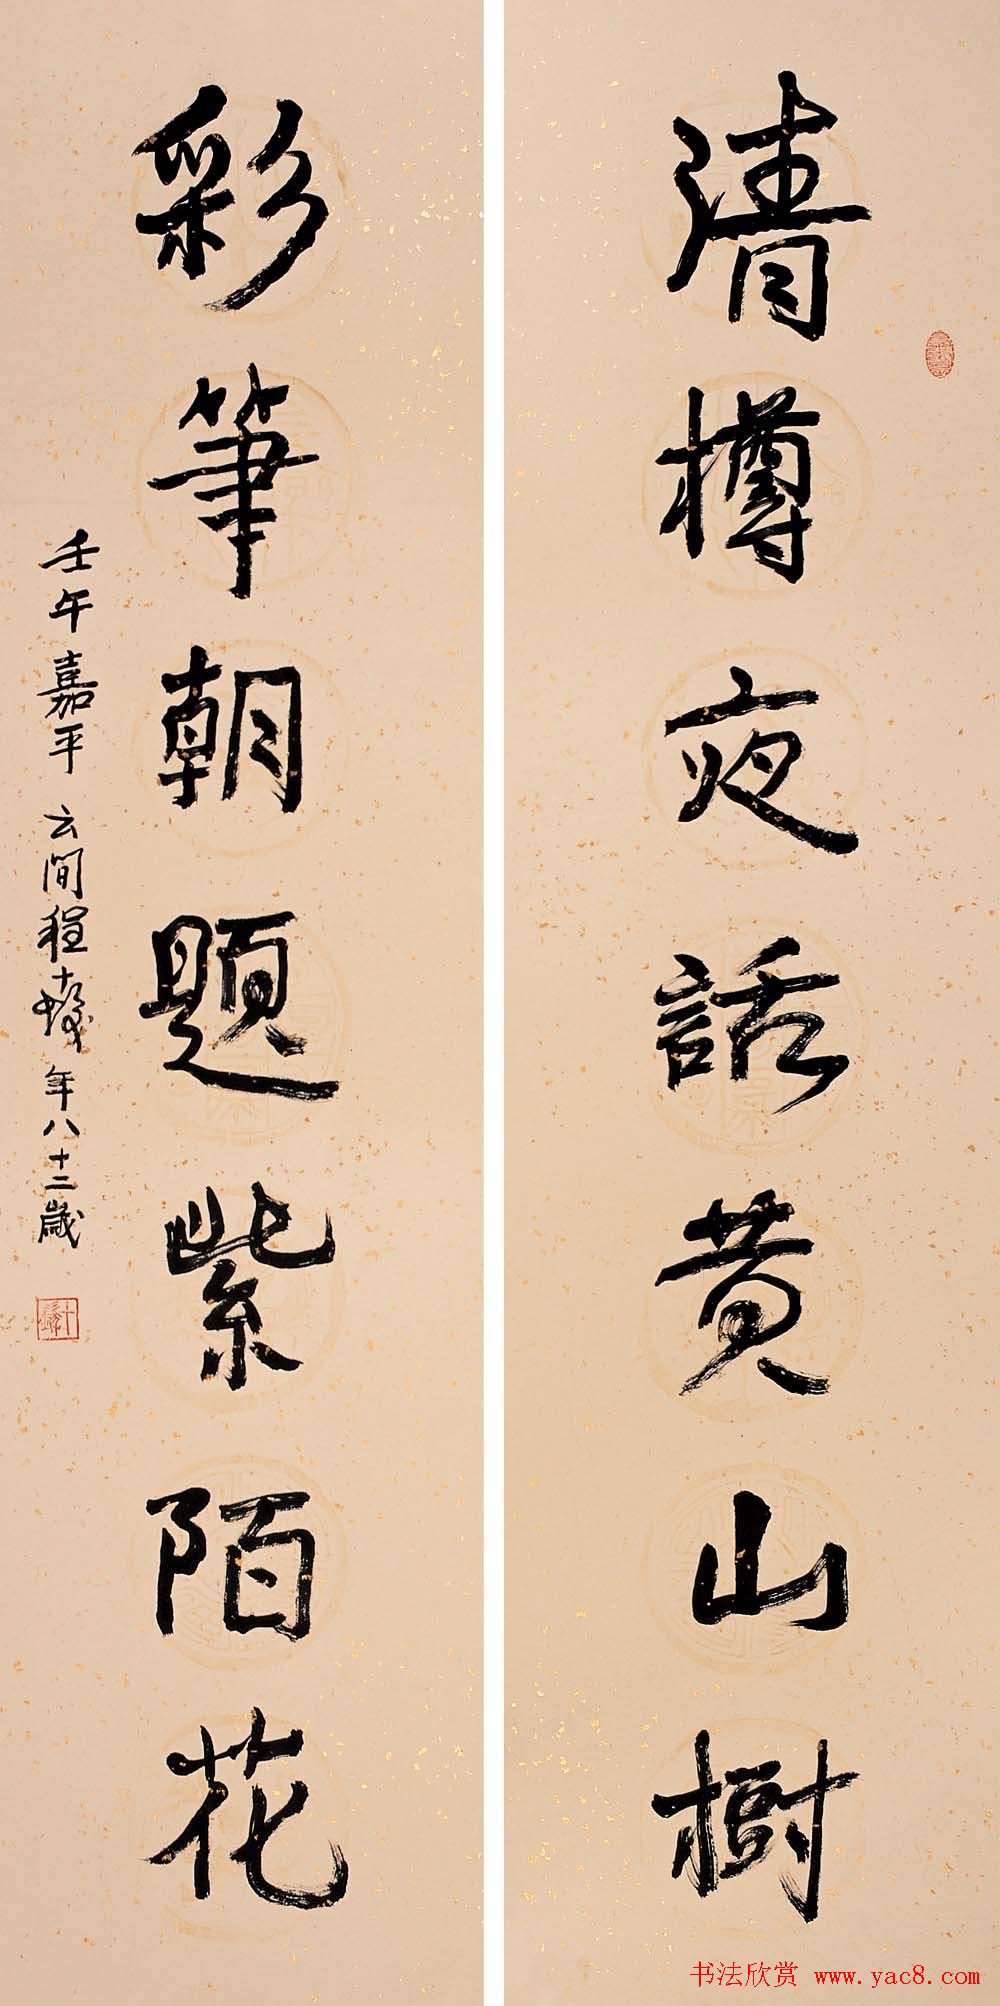 清樽夜話黄山樹
彩筆朝題紫陌花
壬午嘉平 云間程十髮年八十二歲
书法欣赏 www.yac8.com